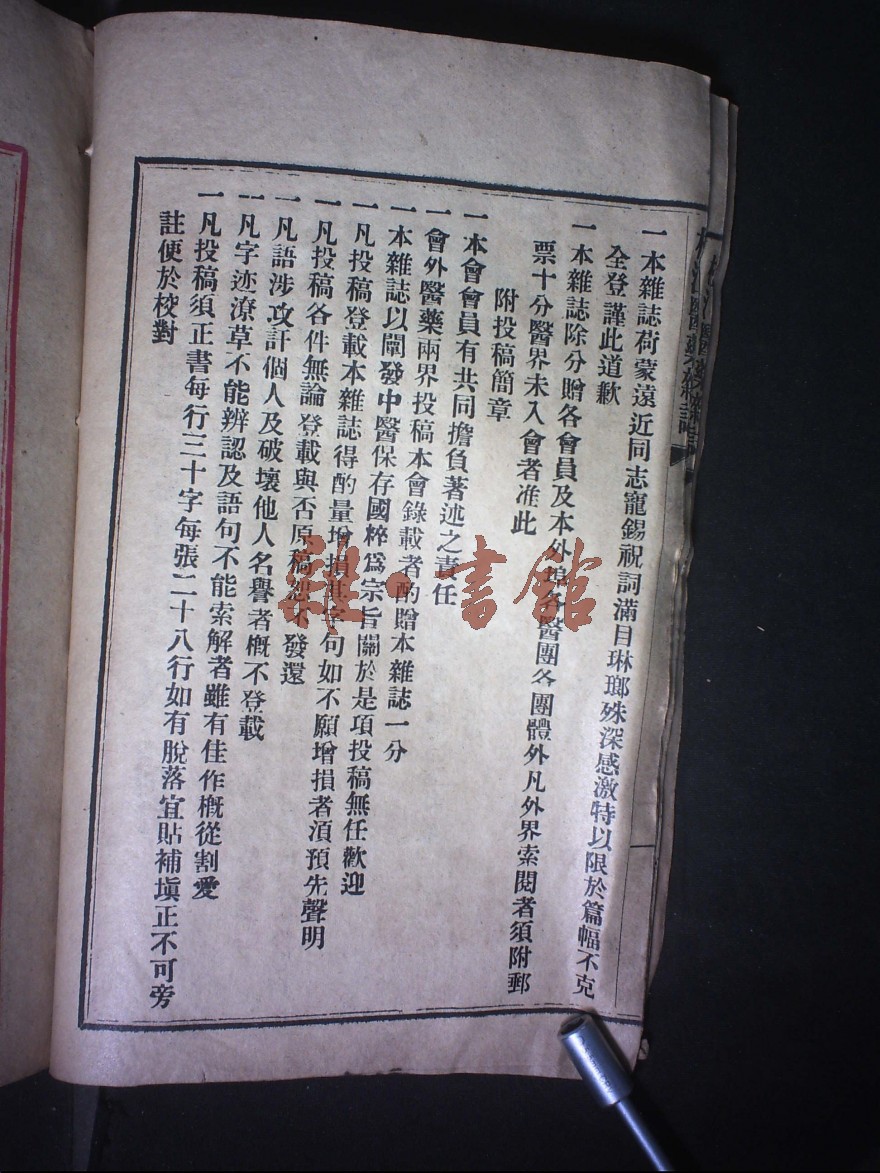 一本雜誌荷蒙遠近同志寵錫祝詞滿目琳瑯殊深感激特以限於篇幅不克
全登謹此道歉
一本雜誌除分贈各會員及本外埠各醫團各團體外凡外界索閱者須附郵
票十分醫界未入會者准此
附投稿簡章
一本會會員有共同擔負著述之責任
一會外醫藥兩界投稿本會錄載者酌贈本雜誌一分
一本雜誌以闡發中醫保存國粹爲宗旨關於是項投稿無任歡迎
一凡投稿登載本雜誌得酌量增損其字句如不願增損者須預先聲明
一凡投稿各件無論登載與否原稿恕不發還
一凡語涉攻訐個人及破壞他人名譽者概不登載
一凡字迹潦草不能辨認及語句不能索解者雖有佳作概從割愛
一凡投稿須正書每行三十字每張二十八行如有脫落宜貼補塡正不可旁
註便於校對
雜·書館